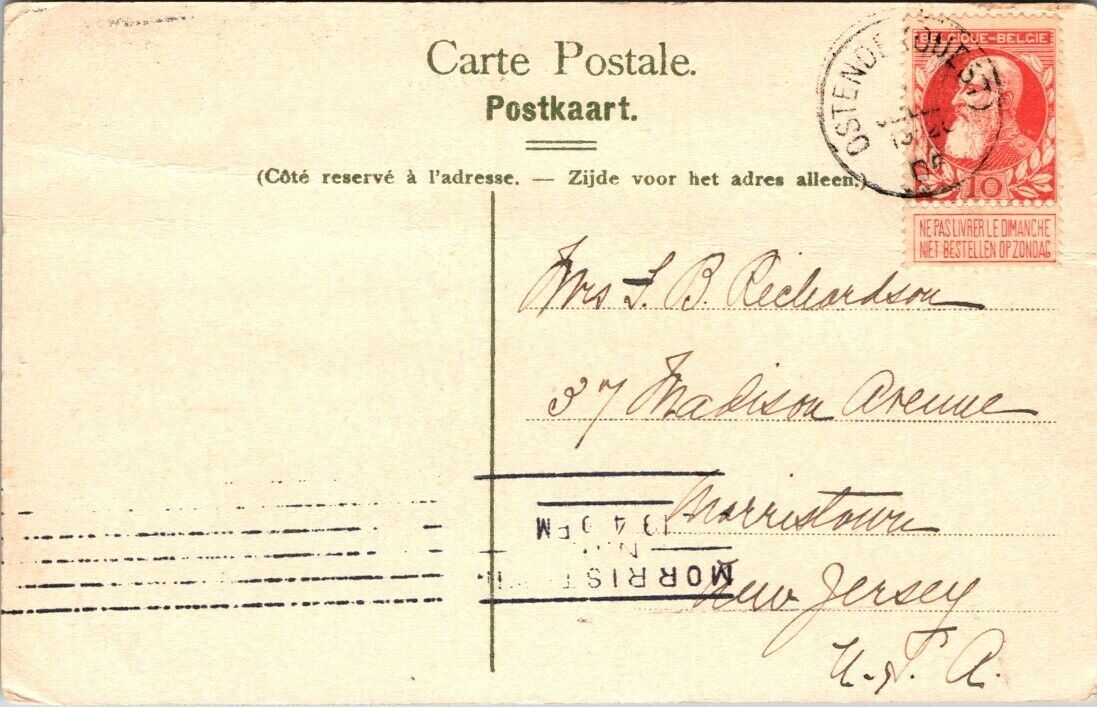 Carte Postale.
Postkaart.
(Côté reservé à l'adresse. — Zijde voor het adres alleen.)
OSTENDE (OUEST)
BELGIQUE-BELGIE
10
NE PAS LIVRER LE DIMANCHE
NIET BESTELLEN OP ZONDAG
Mrs S. B. Richardson
37 Madison Avenue
Morristown
New Jersey
U.S.A.
MORRIS
N.